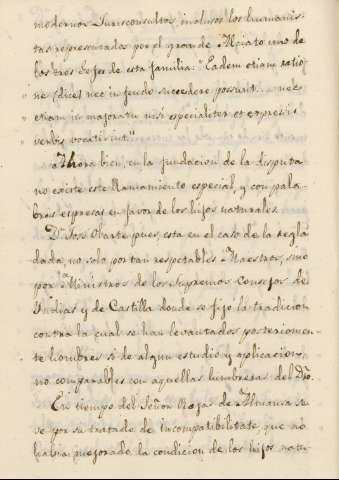 modernos Jurisconsultos, inclusos los humanis-
tas representados por el grande Mojato uno de
los tres Gefes de esta familia: "Eadem etiam ratio
" ne (dice) nec in feudo succedere possunt. nec
" etiam in majoratu nisi specialiter et expresis
verbis vocati sint."
Ahora bien, en la fundacion de la disputa
no existe este llamamiento especial, y con pala-
bras espresas en favor de los hijos naturales.
Dn. José Obarte pues, está en el caso de la regla
dada, no solo por tan respetables Maestros, sino
por Ministros de los Supremos Consejos de
Indias y de Castilla donde se fijó la tradicion
contra la cual se han levantados posteriormen-
te hombres si de algun estudio y aplicacion,
no comparables con aquellas lumbreras del Dro.
En tiempo del Señor Rojas de Almansa su
ve por su tratado de incompatibilitate, que no
habia mejorado la condicion de los hijos natu-